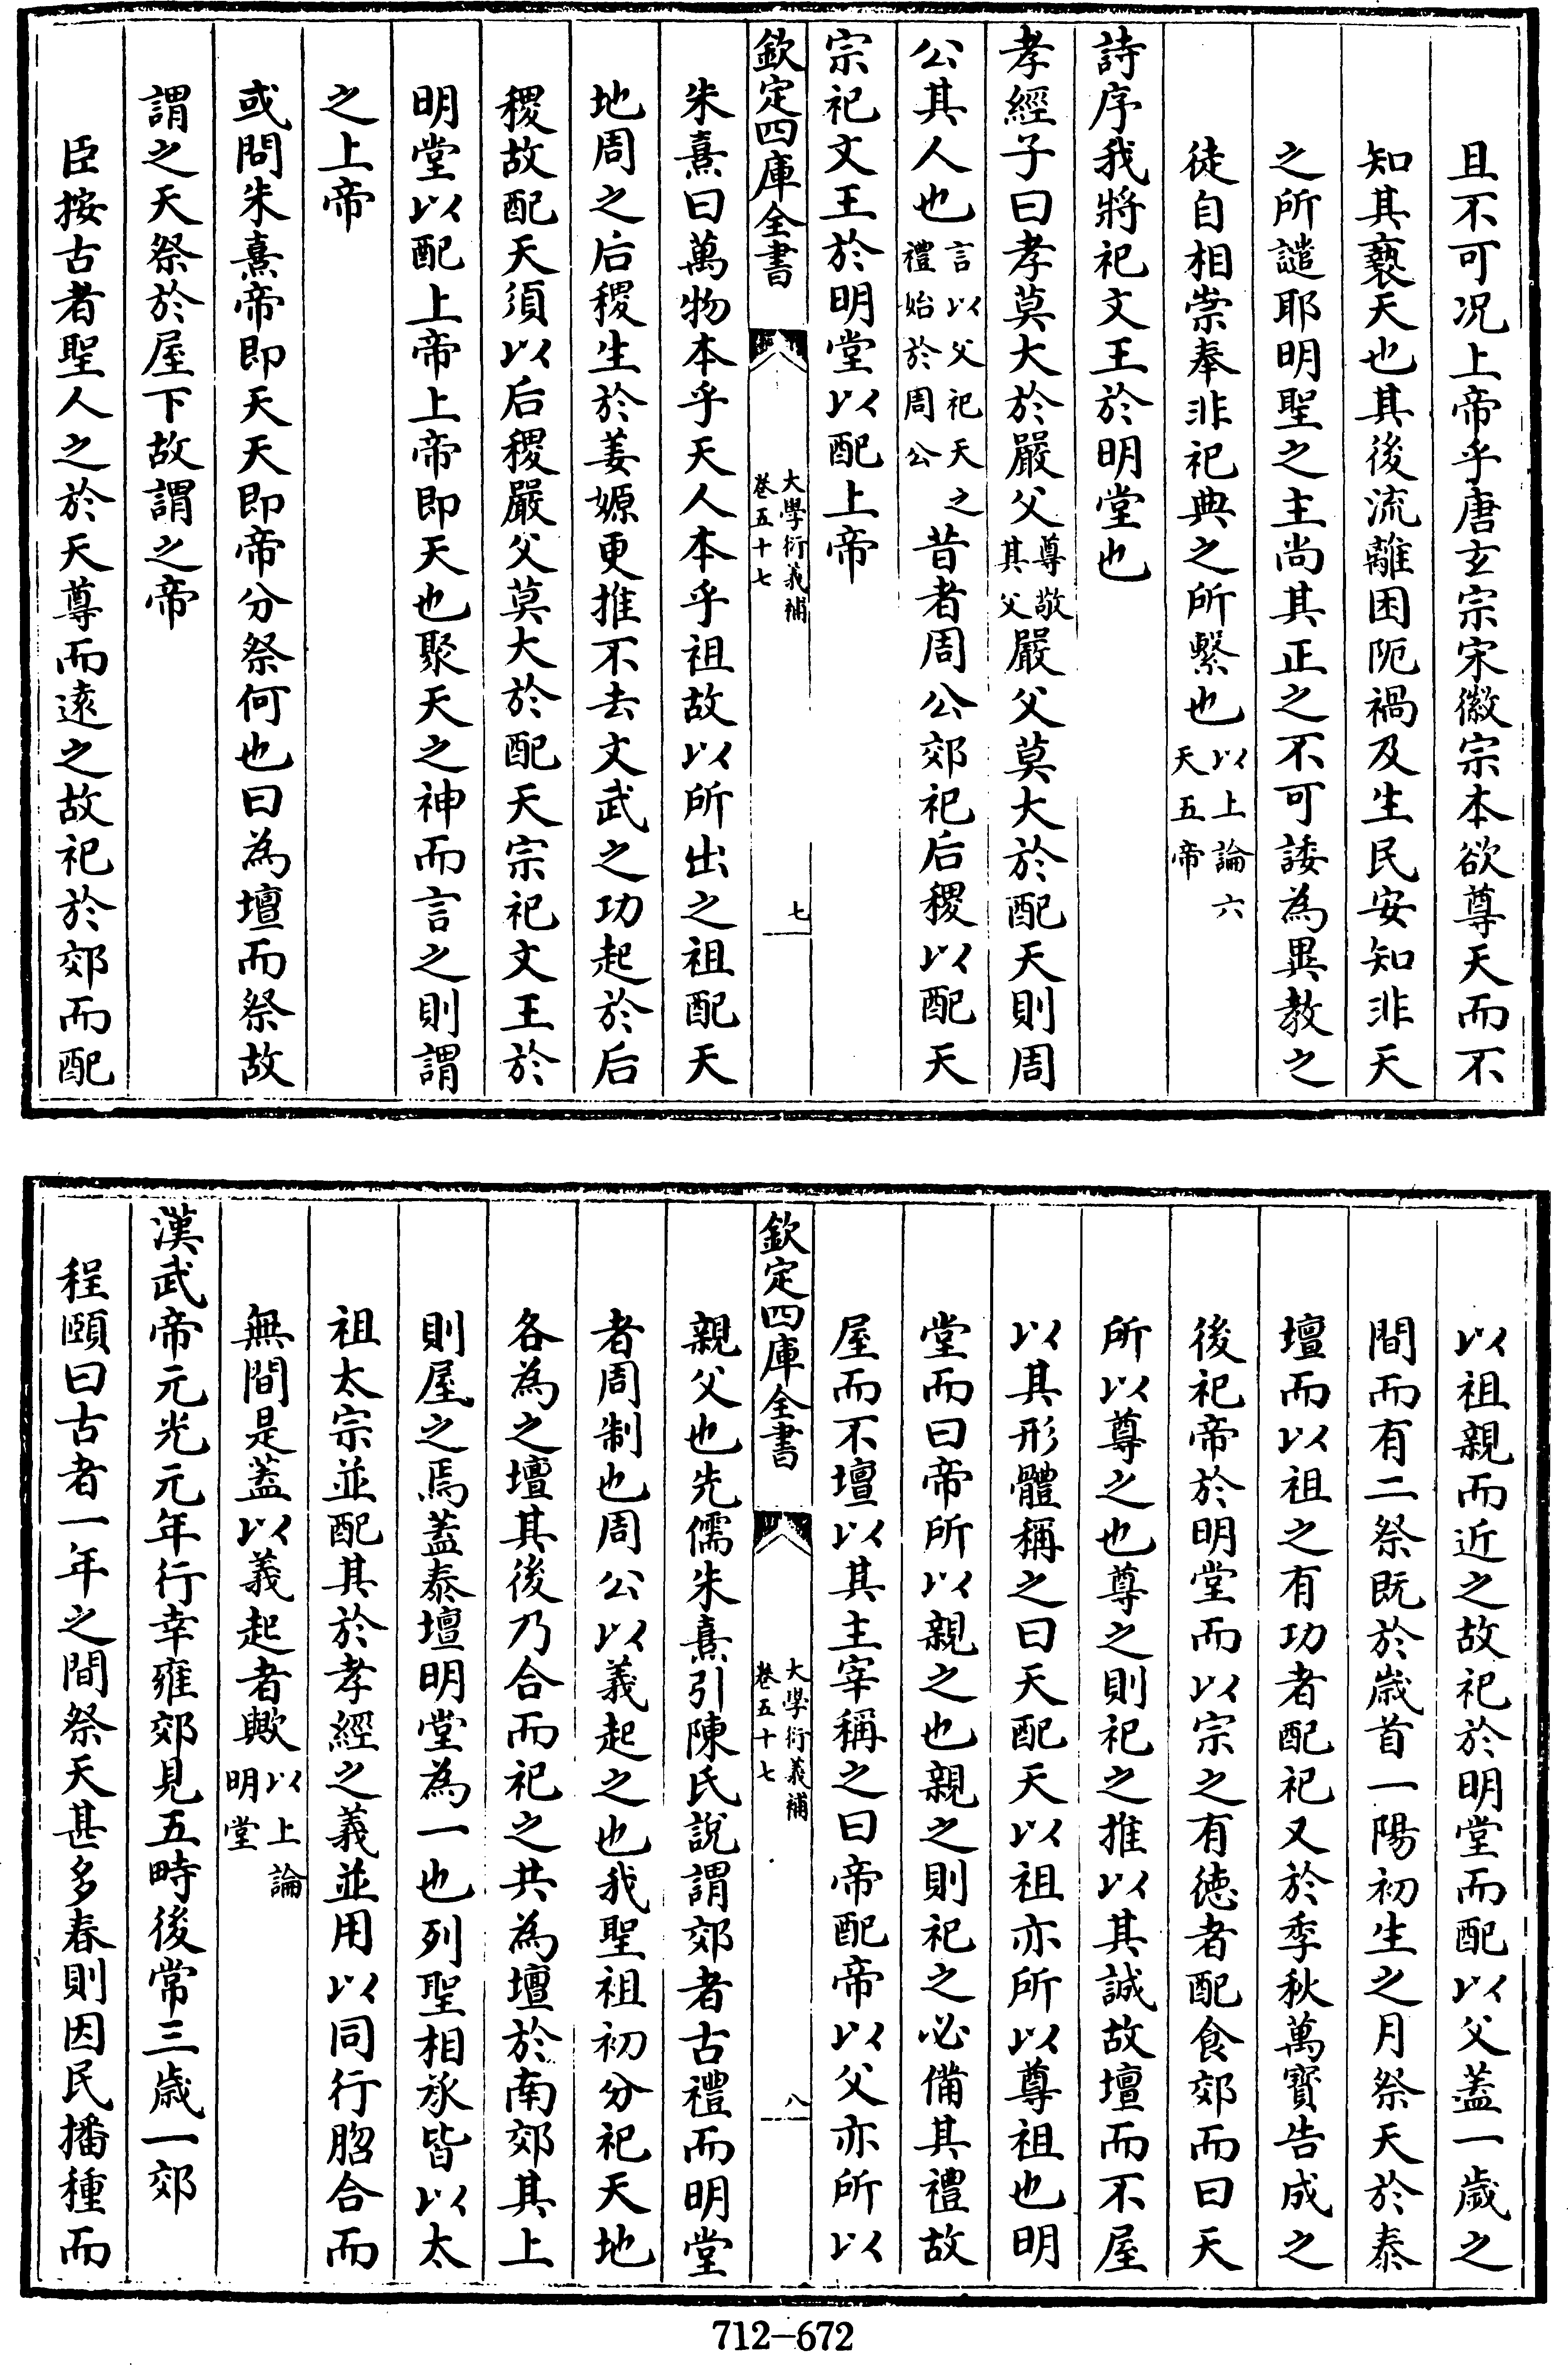 且不可況上帝乎唐玄宗宋徽宗本欲尊天而不
知其褻天也其後流離困阨禍及生民安知非天
之所譴耶明聖之主尚其正之不可諉為異教之
徒自相崇奉非祀典之所繫也以上論六天五帝
詩序我將祀文王於明堂也
孝經子曰孝莫大於嚴父尊敬其父嚴父莫大於配天則周
公其人也言以父祀天之禮始於周公昔者周公郊祀后稷以配天
宗祀文王於明堂以配上帝
欽定四庫全書
大學衍義補
卷五十七
七
朱熹曰萬物本乎天人本乎祖故以所出之祖配天
地周之后稷生於姜嫄更推不去文武之功起於后
稷故配天須以后稷嚴父莫大於配天宗祀文王於
明堂以配上帝上帝即天也聚天之神而言之則謂
之上帝
或問朱熹帝即天天即帝分祭何也曰為壇而祭故
謂之天祭於屋下故謂之帝
臣按古者聖人之於天尊而遠之故祀於郊而配
以祖親而近之故祀於明堂而配以父蓋一歲之
間而有二祭既於歲首一陽初生之月祭天於泰
壇而以祖之有功者配祀又於季秋萬寶告成之
後祀帝於明堂而以宗之有徳者配食郊而曰天
所以尊之也尊之則祀之推以其誠故壇而不屋
以其形體稱之曰天配天以祖亦所以尊祖也明
堂而曰帝所以親之也親之則祀之必備其禮故
屋而不壇以其主宰稱之曰帝配帝以父亦所以
欽定四庫全書
大學衍義補
卷五十七
八
親父也先儒朱熹引陳氏說謂郊者古禮而明堂
者周制也周公以義起之也我聖祖初分祀天地
各為之壇其後乃合而祀之共為壇於南郊其上
則屋之焉蓋泰壇明堂為一也列聖相承皆以太
祖太宗並配其於孝經之義並用以同行脗合而
無間是蓋以義起者歟以上論明堂
漢武帝元光元年行幸雍郊見五畤後常三歲一郊
程頤曰古者一年之間祭天甚多春則因民播種而
712-672